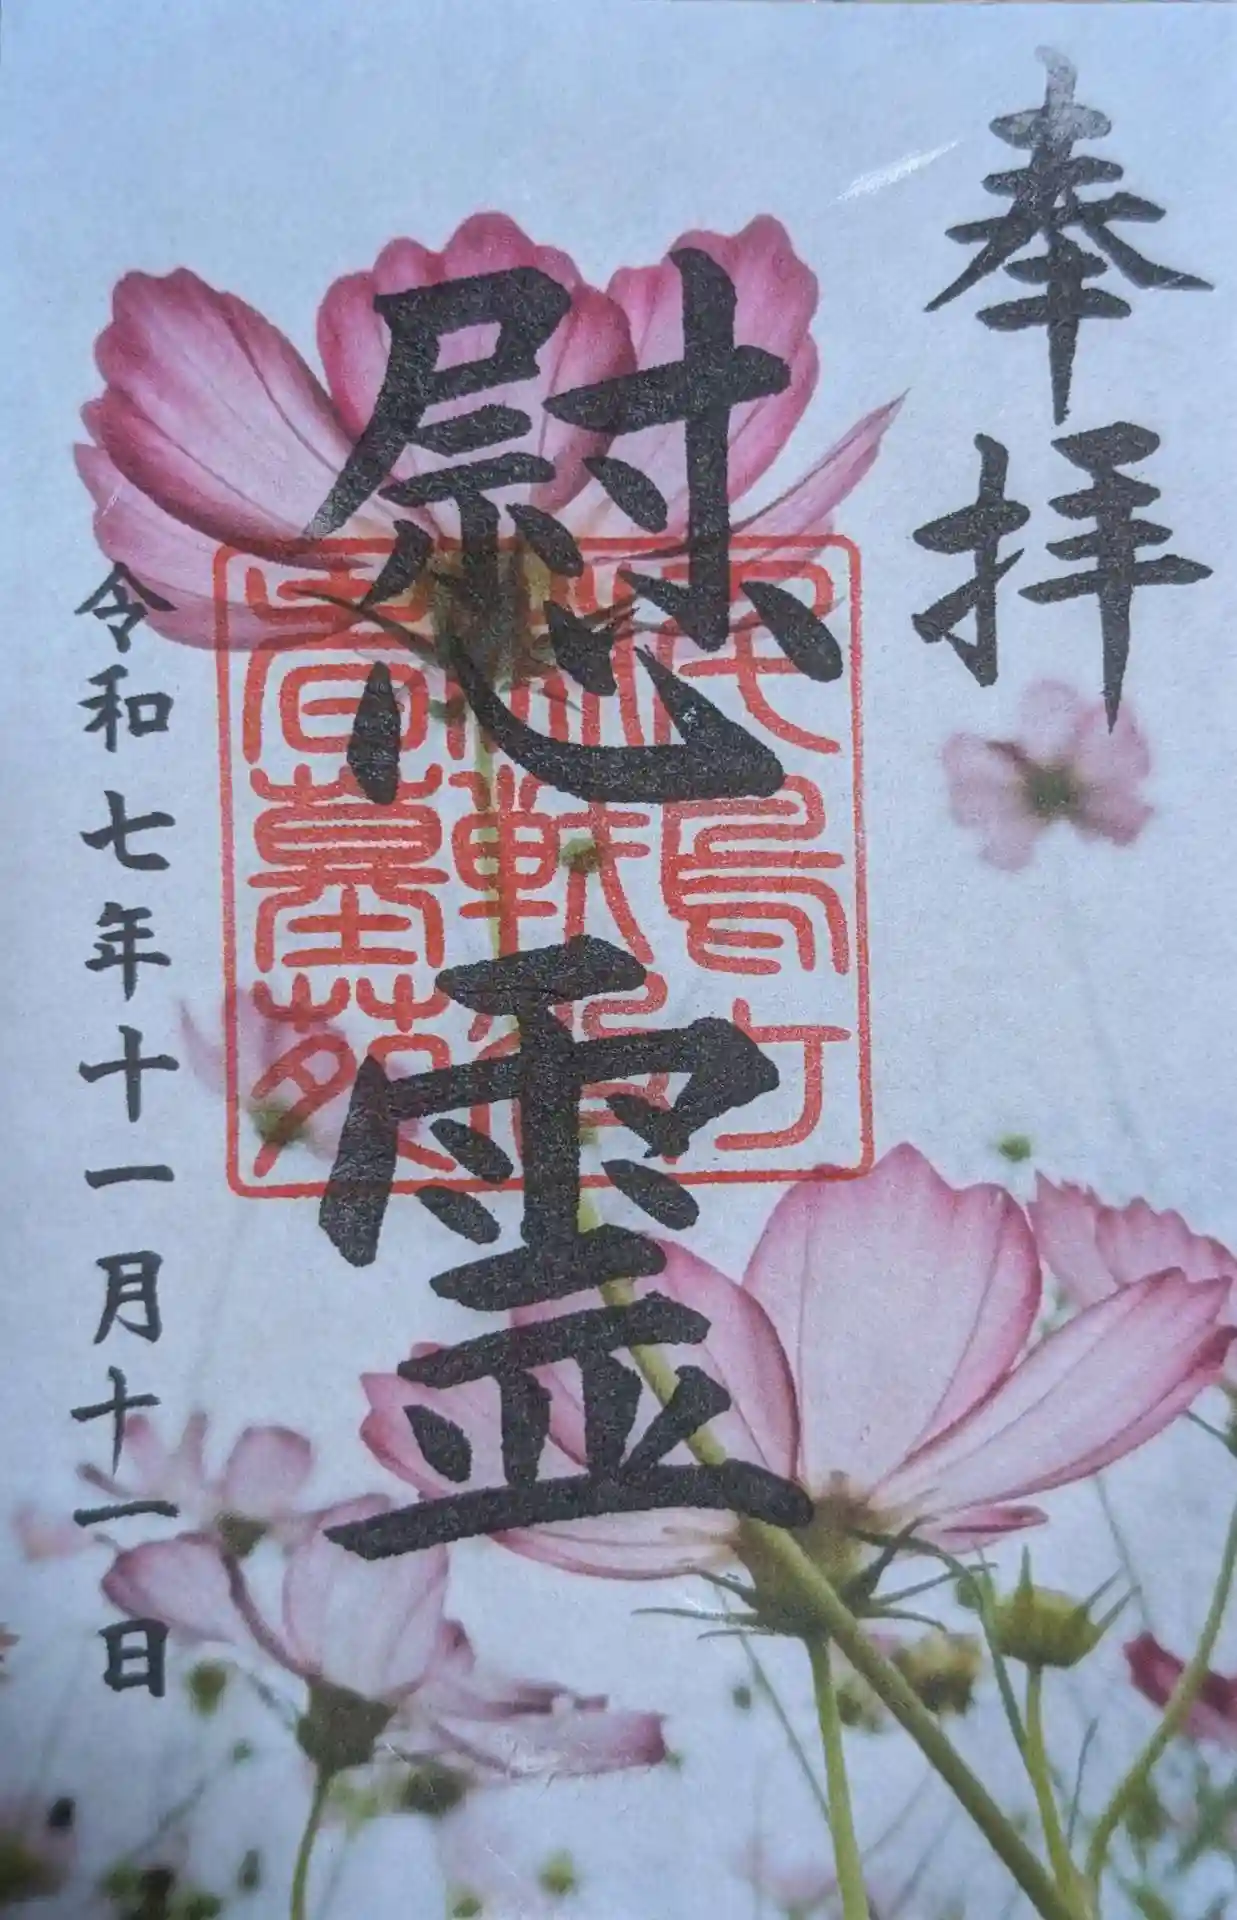 奉拝
慰霊
者墓苑
令和七年十一月十一日